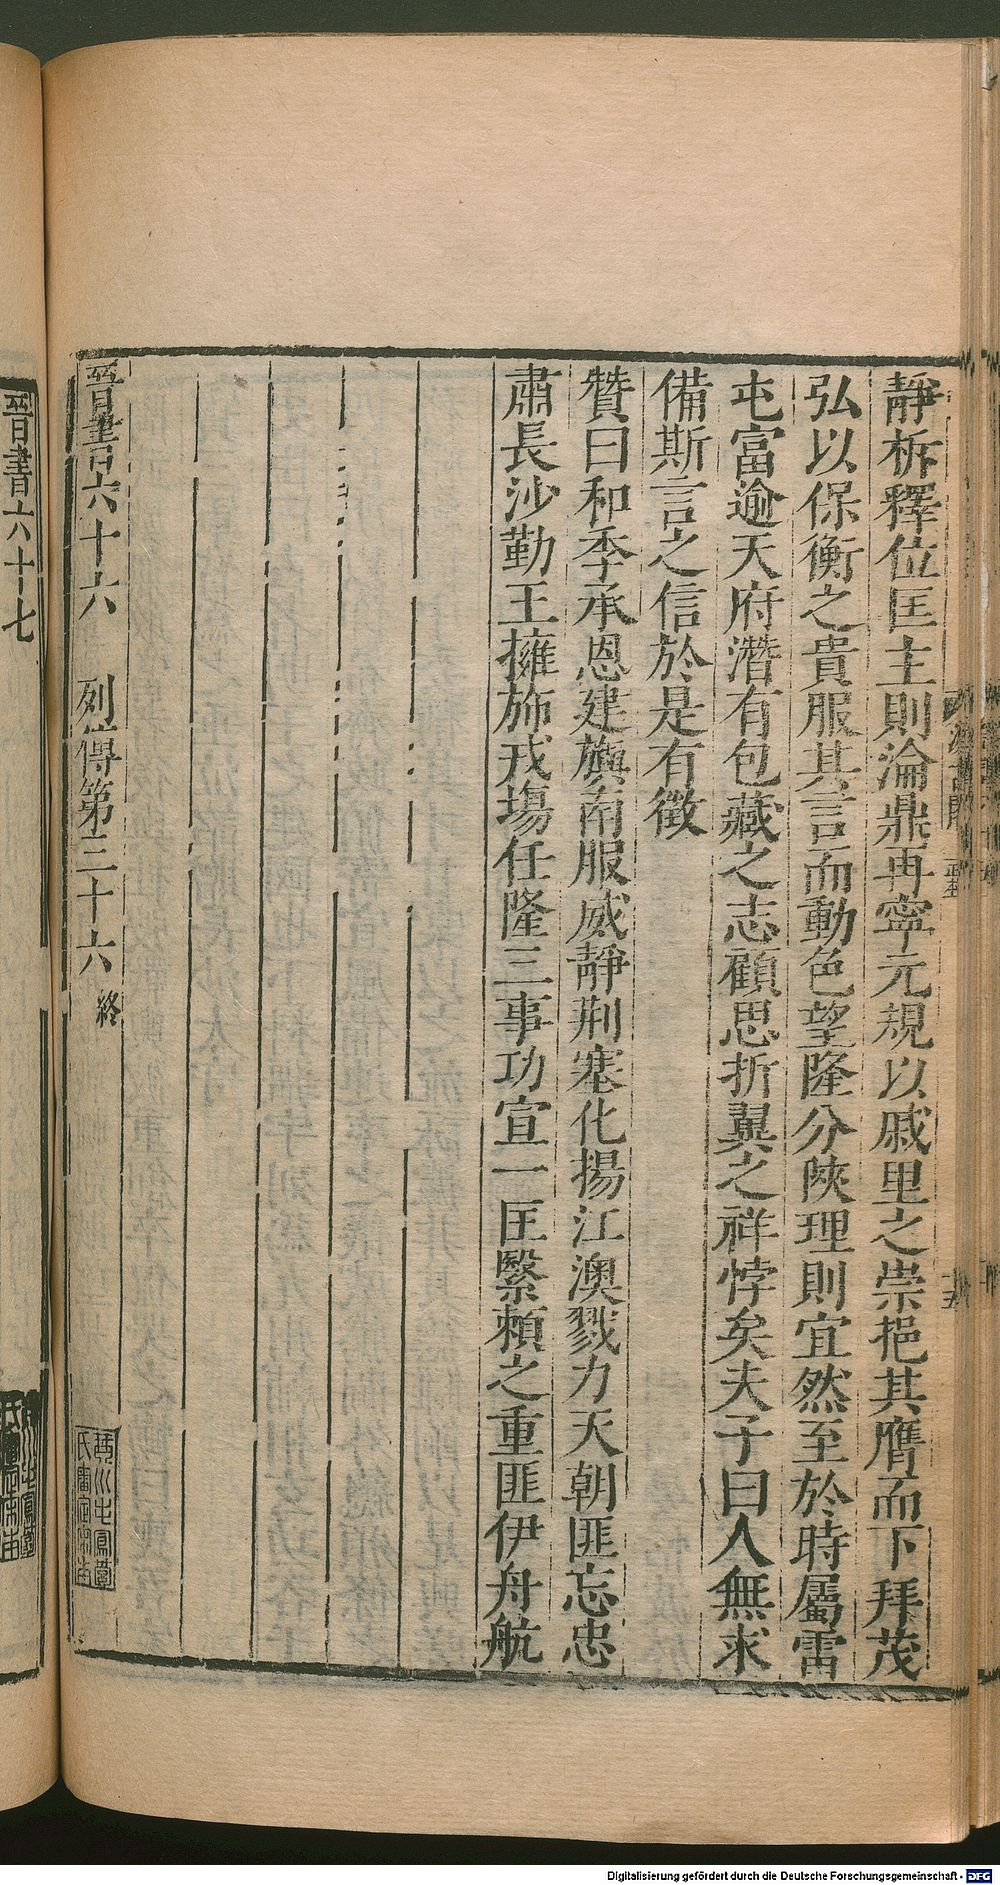 靜柝釋位匡主則淪鼎再寧元規以戚里之崇挹其膺而下拜茂
弘以保衡之貴服其言而動色望隆分陝理則宜然至於時屬雷
屯富逾天府潛有包藏之志顧思折翼之祥悖矣夫子曰人無求
備斯言之信於是有徵
贊曰和季承恩建旟南服威靜荊塞化揚江澳戮力天朝匪忘忠
肅長沙勤王擁斾戎場任隆三事功宣一匡繄賴之重匪伊舟航
晉書六十六 列傳第三十六 終
晉書六十七
Digitalisierung gefördert durch die Deutsche Forschungsgemeinschaft - DFG